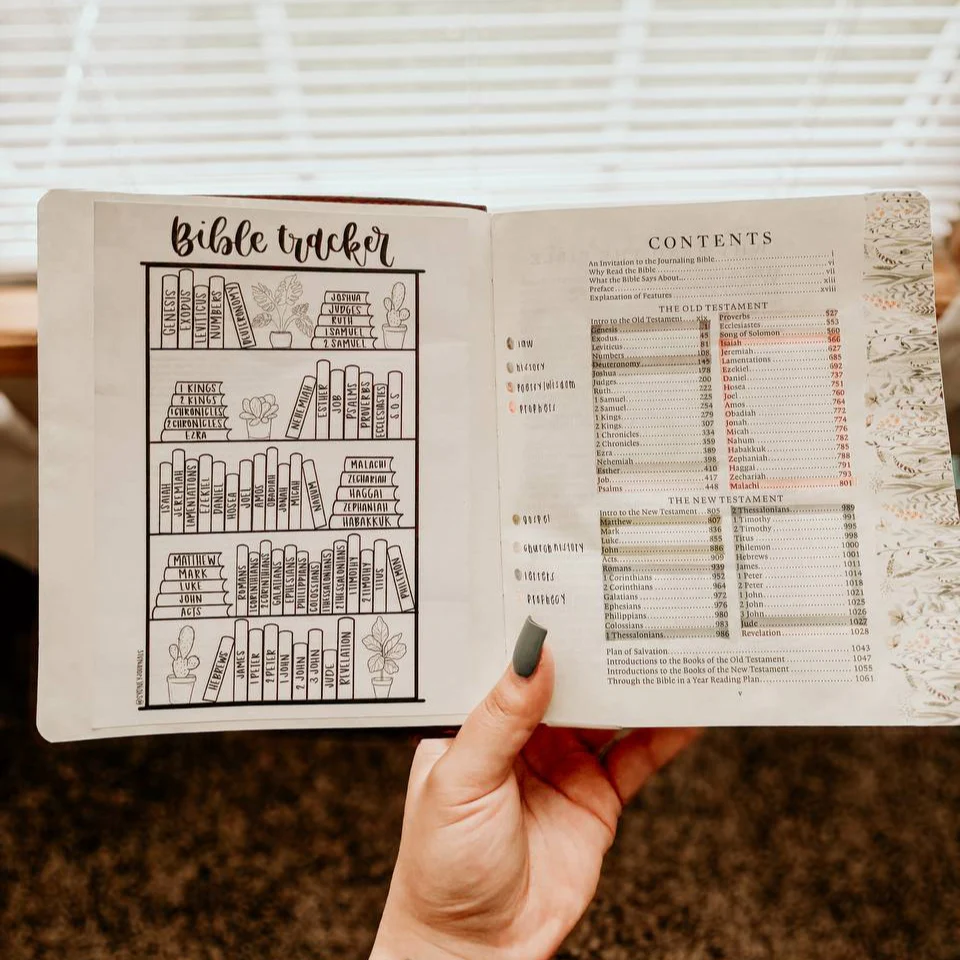 Bible tracker
GENESIS
EXODUS
LEVITICUS
NUMBERS
DEUTERONOMY
JOSHUA
JUDGES
RUTH
1 SAMUEL
2 SAMUEL
1 KINGS
2 KINGS
1 CHRONICLES
2 CHRONICLES
EZRA
NEHEMIAH
ESTHER
JOB
PSALMS
PROVERBS
ECCLESIASTES
S.O.S
ISAIAH
JEREMIAH
LAMENTATIONS
EZEKIEL
DANIEL
HOSEA
JOEL
AMOS
OBADIAH
JONAH
MICAH
NAHUM
MALACHI
ZECHARIAH
HAGGAI
ZEPHANIAH
HABAKKUK
MATTHEW
MARK
LUKE
JOHN
ACTS
ROMANS
1 CORINTHIANS
2 CORINTHIANS
GALATIANS
EPHESIANS
PHILIPPIANS
COLOSSIANS
1 THESSALONIANS
2 THESSALONIANS
1 TIMOTHY
2 TIMOTHY
TITUS
PHILEMON
HEBREWS
JAMES
1 PETER
2 PETER
1 JOHN
2 JOHN
3 JOHN
JUDE
REVELATION
CONTENTS
An Invitation to the Journaling Bible
Why Read the Bible vi
What the Bible Says About... vii
Preface xiii
Explanation of Features xviii
THE OLD TESTAMENT
Intro to the Old Testament xix
Genesis
Exodus 45
Leviticus 81
Numbers 108
Deuteronomy 145
Joshua 178
Judges 200
Ruth 222
1 Samuel 225
2 Samuel 254
1 Kings 279
2 Kings 307
1 Chronicles 334
2 Chronicles 359
Ezra 389
Nehemiah 398
Esther 410
Job 417
Psalms 448
Proverbs 527
Ecclesiastes 553
Song of Solomon 560
Isaiah 566
Jeremiah 627
Lamentations 685
Ezekiel 692
Daniel 737
Hosea 751
Joel 760
Amos 764
Obadiah 772
Jonah 774
Micah 776
Nahum 782
Habakkuk 785
Zephaniah 788
Haggai 791
Zechariah 793
Malachi 801
law
history
poetry/wisdom
prophets
THE NEW TESTAMENT
Intro to the New Testament 805
Matthew 807
Mark 836
Luke 855
John 886
Acts 909
Romans 939
1 Corinthians 952
2 Corinthians 964
Galatians 972
Ephesians 976
Philippians 980
Colossians 983
1 Thessalonians 986
2 Thessalonians 989
1 Timothy 991
2 Timothy 995
Titus 998
Philemon 1000
Hebrews 1001
James 1011
1 Peter 1014
2 Peter 1018
1 John 1021
2 John 1025
3 John 1026
Jude 1027
Revelation 1028
gospel
church history
letters
prophecy
Plan of Salvation 1043
Introductions to the Books of the Old Testament 1047
Introductions to the Books of the New Testament 1055
Through the Bible in a Year Reading Plan 1061
v